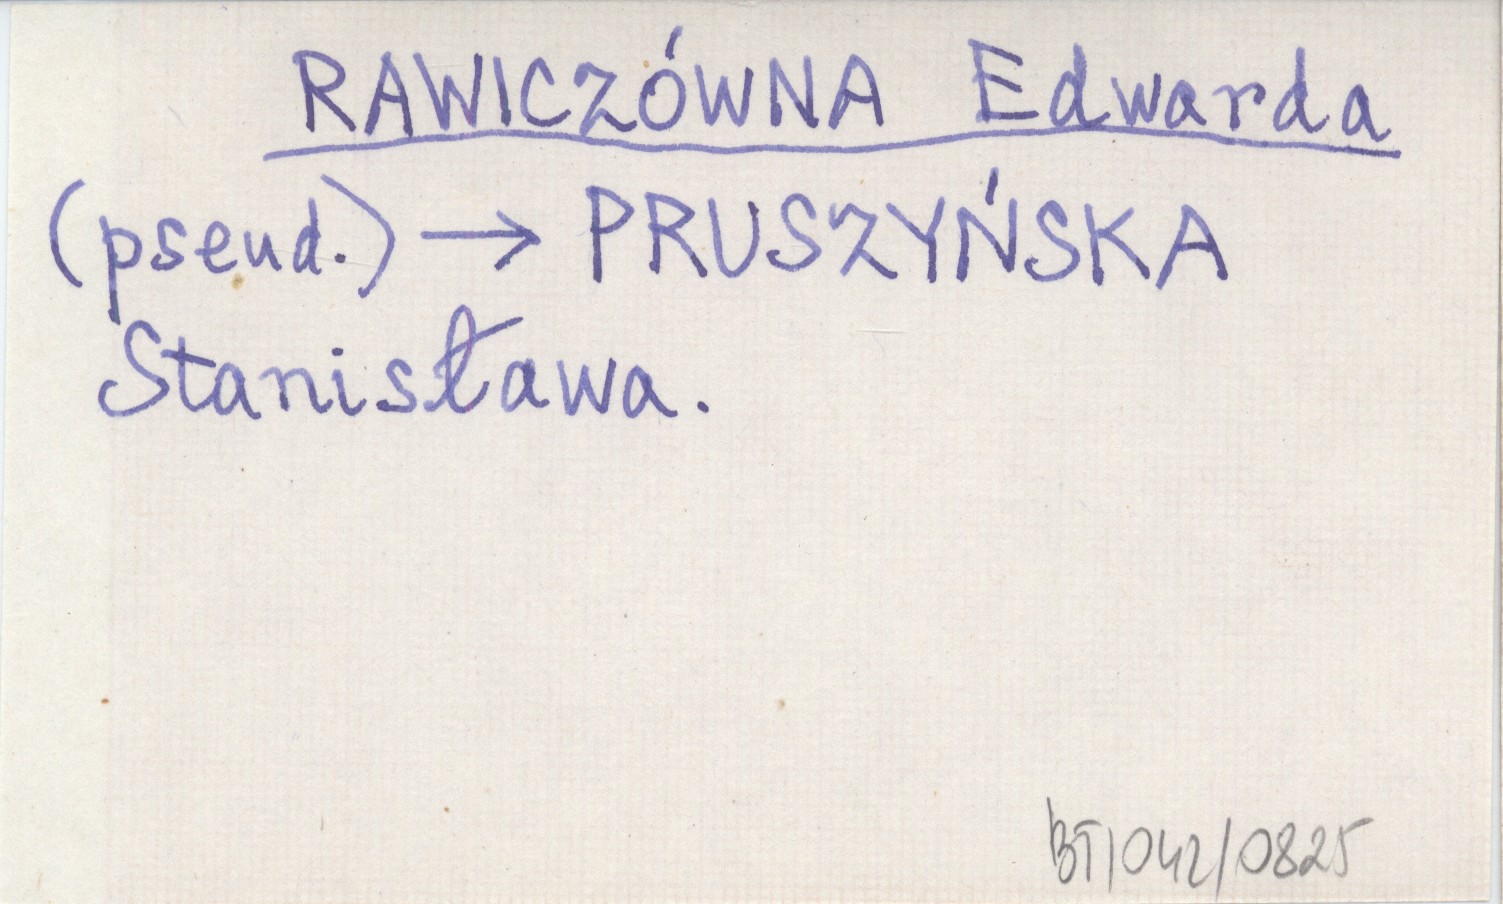 RAWICZÓWNA Edwarda
(pseud.) → PRUSZYŃSKA
Stanisława.
BT/042/0825